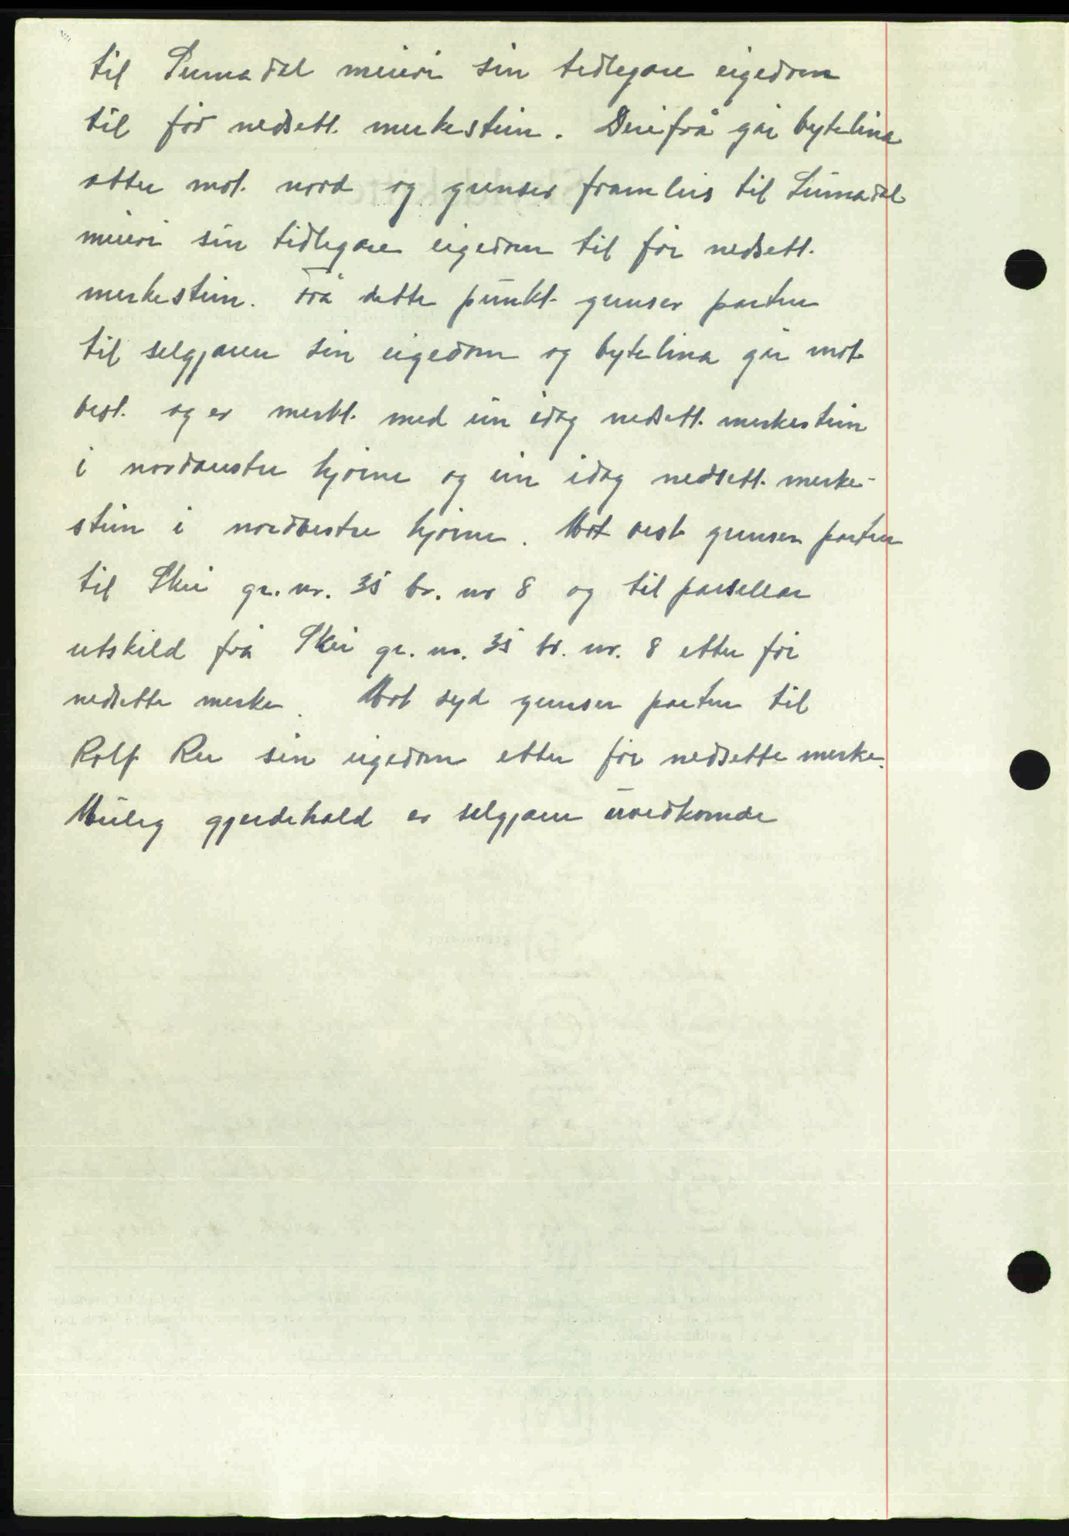 til Surnadal meieri sin tidlegare eigedom
til før nedsett merkestein. Derifrå går bytelina
atter mot nord og grenser framleis til Surnadal
meieri sin tidlegare eigedom til før nedsett
merkestein. Frå dette punkt grenser parten
til selgjaren sin eigedom og bytelina går mot
vest og er merkt med ein idag nedsett merkestein
i nordaustre hjørne og ein idag nedsett merke-
stein i nordvestre hjørne. Mot vest grenser parten
til Skei gr. nr. 35 br. nr 8 og til parsellar
utskild frå Skei gr. nr. 35 br. nr. 8 etter før
nedsette merke. Mot syd grenser parten til
Rolf Røe sin eigedom etter før nedsette merke.
Muleg gjerdehald er selgjaren uvedkomde